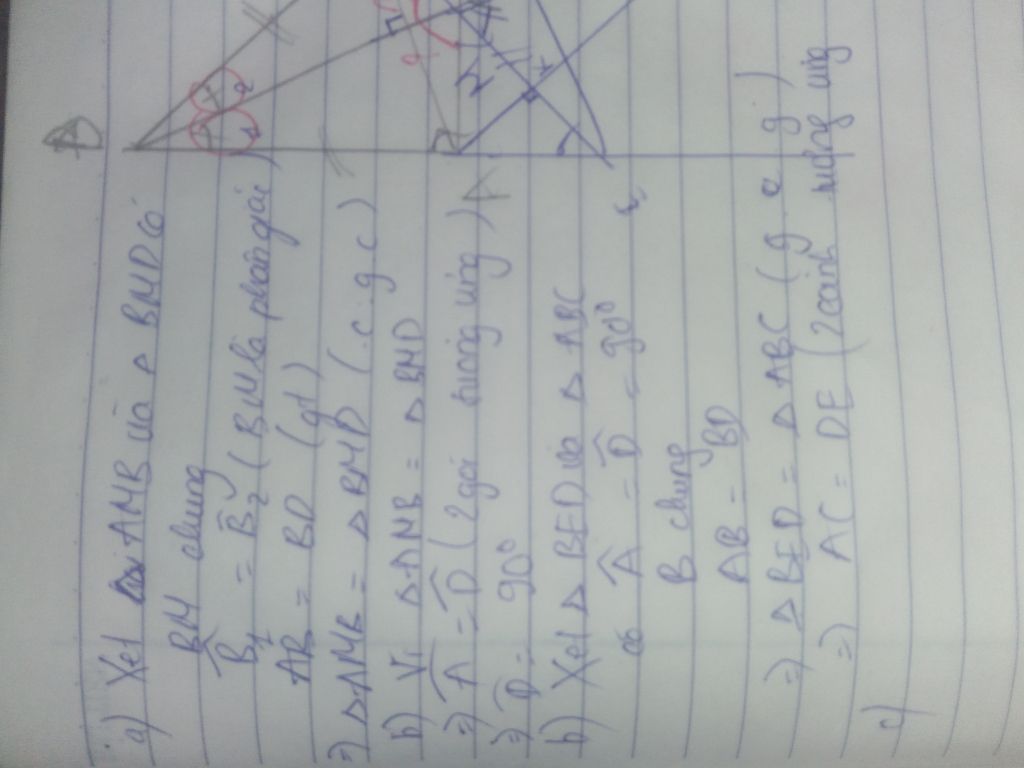 a) Xét ΔAMB và ΔBMD có
BM chung
B̂1 = B̂2 (BM là phân giái)
AB = BD (gt)
=) ΔAMB = ΔBMD (c.g c)
b) Vì ΔAMB = ΔBMD
=) Â = D̂ (2 gói tương ứng)
=) D̂ = 90°
b) Xét Δ BED và Δ ABC
có Â = D̂ = 90°
B chung
AB = BD
=) Δ BED = Δ ABC (g c g)
=) AC = DE (2 cạnh tương ứng
c)